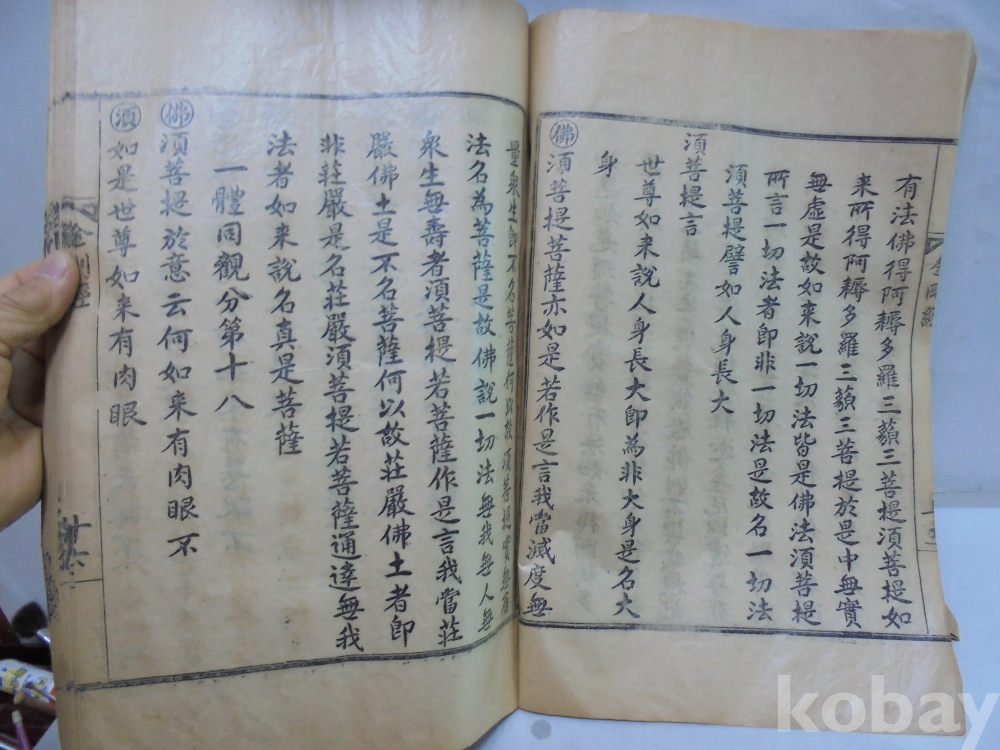 有法佛得阿耨多羅三藐三菩提須菩提如
来所得阿耨多羅三藐三菩提於是中無實
無虛是故如来說一切法皆是佛法須菩提
所言一切法者即非一切法是故名一切法
須菩提譬如人身長大
須菩提言
世尊如来說人身長大即為非大身是名大
身
佛 須菩提菩薩亦如是若作是言我當滅度無
量衆生即不名菩薩何以故須菩提實無有
法名為菩薩是故佛說一切法無我無人無
衆生無壽者須菩提若菩薩作是言我當莊
嚴佛土是不名菩薩何以故莊嚴佛土者即
非莊嚴是名莊嚴須菩提若菩薩通達無我
法者如来說名真是菩薩
一體同觀分第十八
佛 須菩提於意云何如来有肉眼不
須 如是世尊如来有肉眼
金剛經
kobay